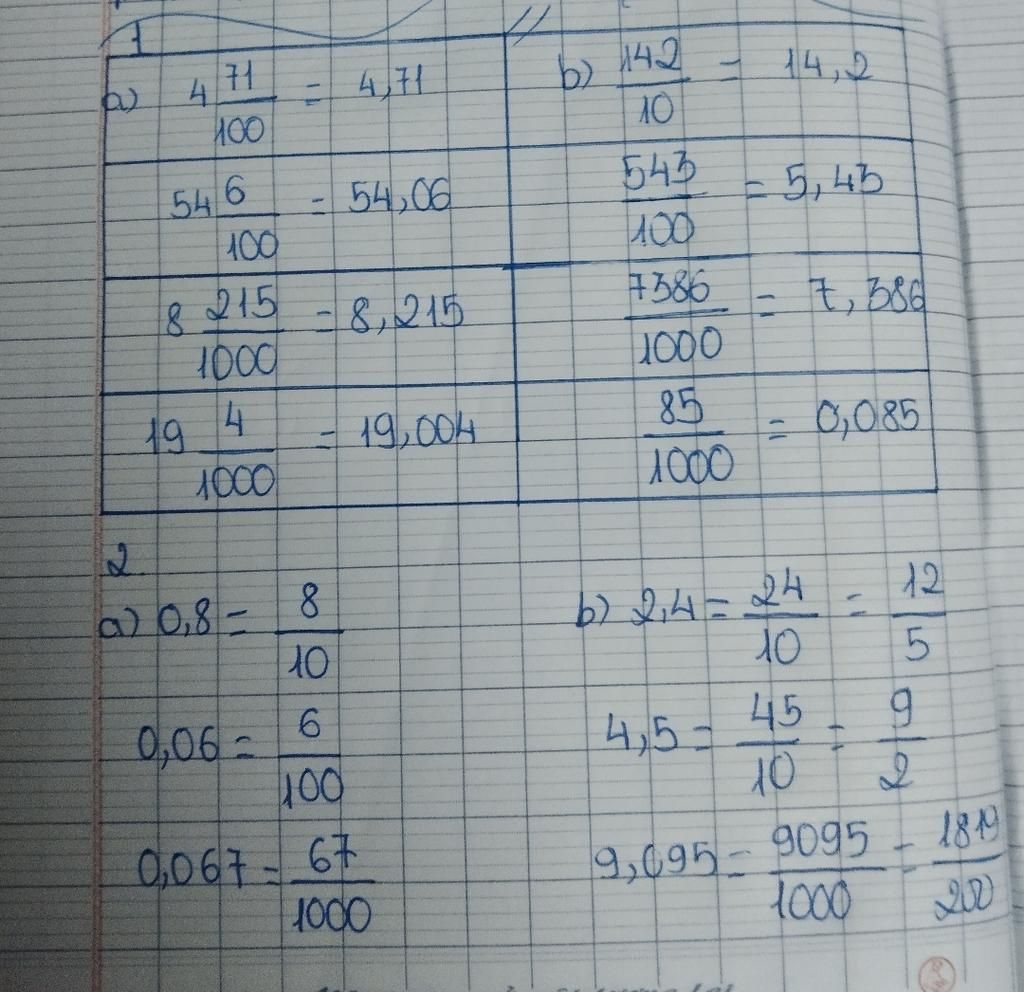 1
a) 4 71/100 = 4,71
b) 142/10 = 14,2
54 6/100 = 54,06
543/100 = 5,43
8 215/1000 = 8,215
7386/1000 = 7,386
19 4/1000 = 19,004
85/1000 = 0,085
2
a) 0,8 = 8/10
b) 2,4 = 24/10 = 12/5
0,06 = 6/100
4,5 = 45/10 = 9/2
0,067 = 67/1000
9,095 = 9095/1000 = 1819/200